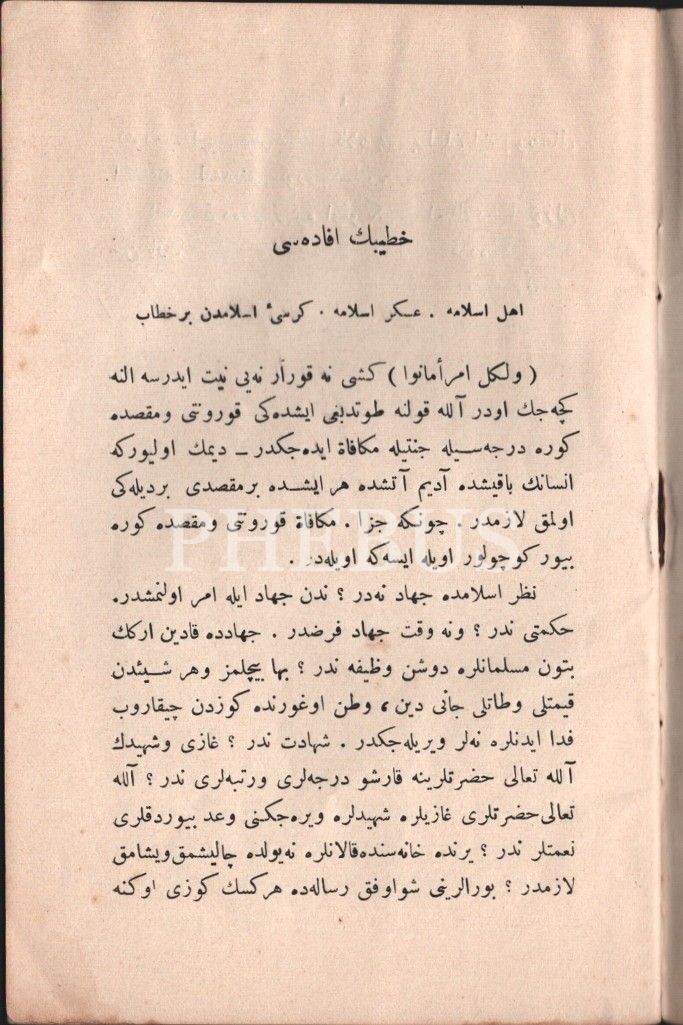 خطیبك افاده‌سی
اهل اسلامه . عسکر اسلامه . کرسئ اسلامدن برخطاب
( ولکل امرأمانوا ) کشی نه قورار نه‌یی نیت ایدرسه النه
کچه‌جك اودر آلله قولنه طوتدیغی ایشده‌کی قورونتی ومقصده
کوره درجه‌سیله جنتیله مکافاة ایده‌جکدر ــ دیمك اولیورکه
انسانك باقیشده آدیم آتشده هرایشده برمقصدی بردیله‌کی
اولمق لازمدر . چونکه جزا . مکافاة قوروتنی ومقصده کوره
بیورکوچولور اویله ایسه‌که اویله‌در .
نظر اسلامده جهاد نه‌در ؟ ندن جهاد ایله امر اولنمشدر.
حکمتی ندر ؟ ونه وقت جهاد فرضدر . جهادده قادین ارکك
بتون مسلمانلره دوشن وظیفه ندر ؟ بها بیچلمز وهر شیئدن
قیمتلی وطاتلی جانی دین، وطن اوغورنده کوزدن چیقاروب
فدا ایدنلره نه‌لر ویریله‌جکدر . شهادت ندر ؟ غازی وشهیدك
آلله تعالی حضرتلرینه قارشو درجه‌لری ورتبه‌لری ندر ؟ آلله
تعالی حضرتلری غازیلره شهیدلره ویره‌جکنی وعد بیوردقلری
نعمتلر ندر ؟ یرنده خانه‌سنده قالانلره نه‌یولده چالیشمق ویشامق
لازمدر ؟ بورالرینی شواوفق رساله‌ده هرکسك کوزی اوکنه
PHEBUS